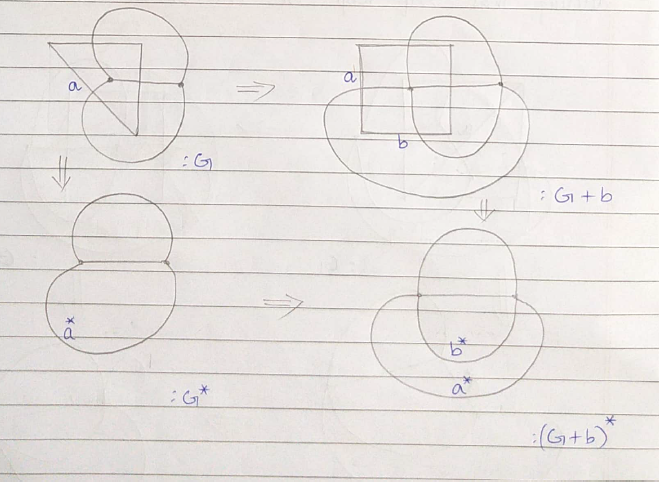 a
: G
a
b
: G + b
a*
: G*
b*
a*
: (G + b)*